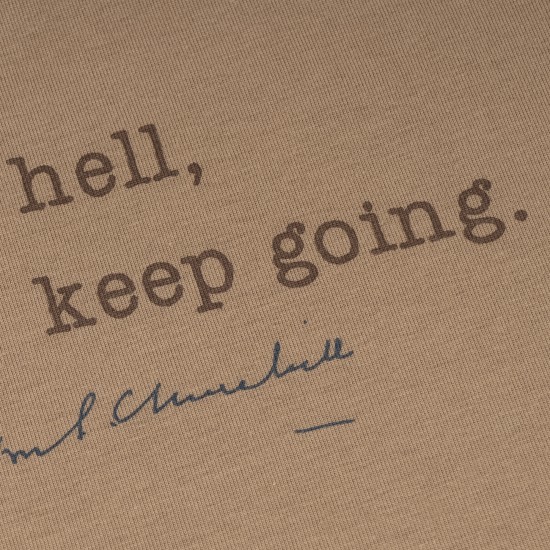 hell,
keep going.
S. Churchill